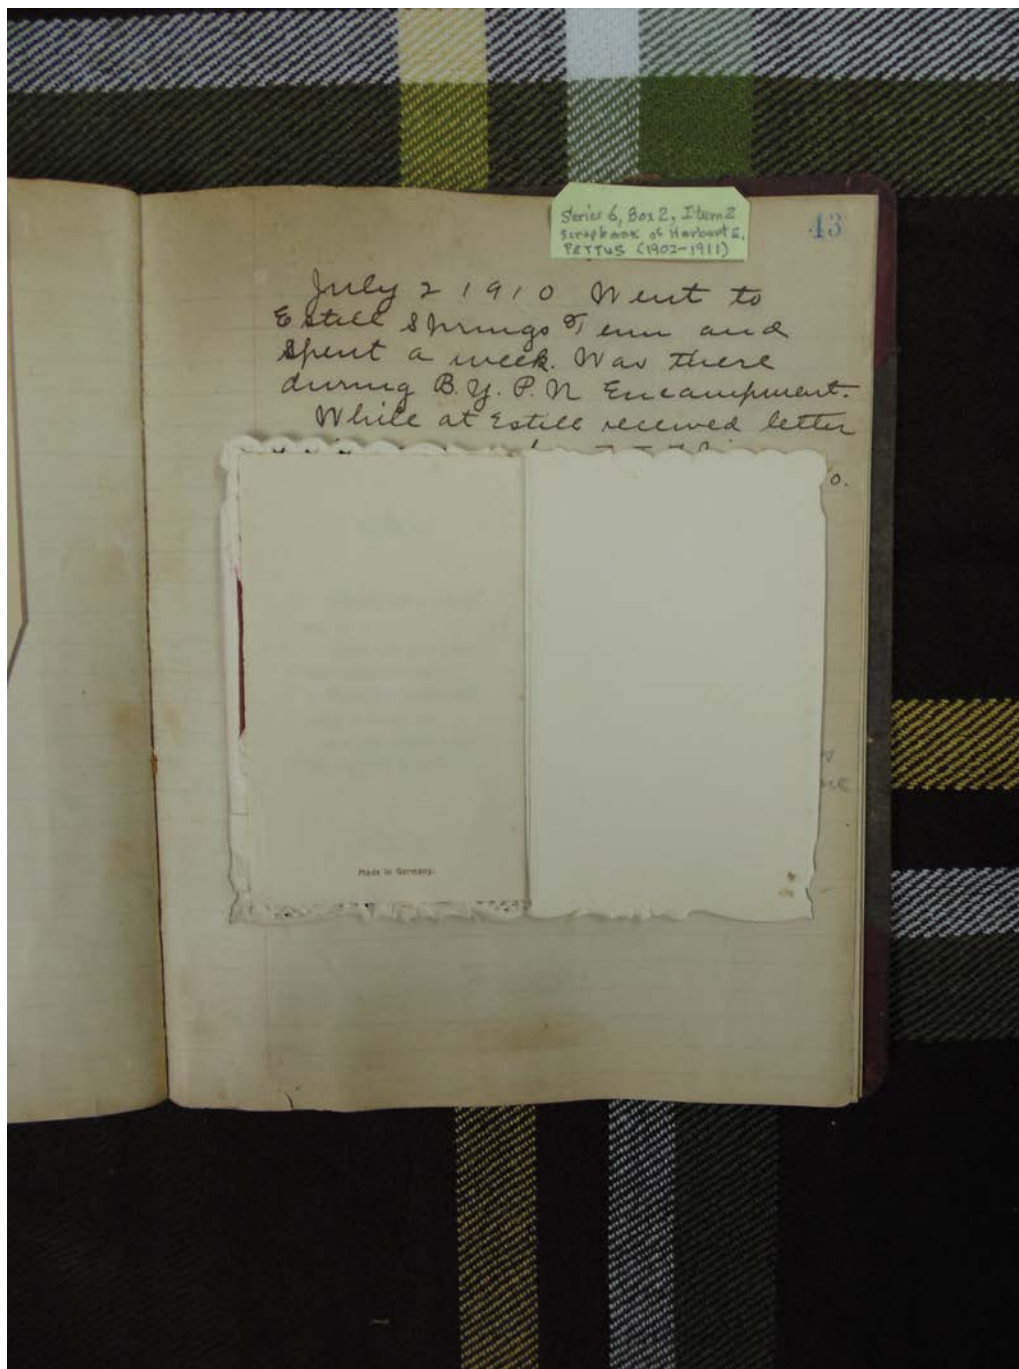 Series 6, Box 2, Item 2
Scrapbook of Herbert E.
PETTUS (1902-1911)
43
July 2 1910 Went to
Estill Springs Tenn and
Spent a week. Was there
during B.Y.P.U Encampment.
While at Estill received letter
o.
Made in Germany.